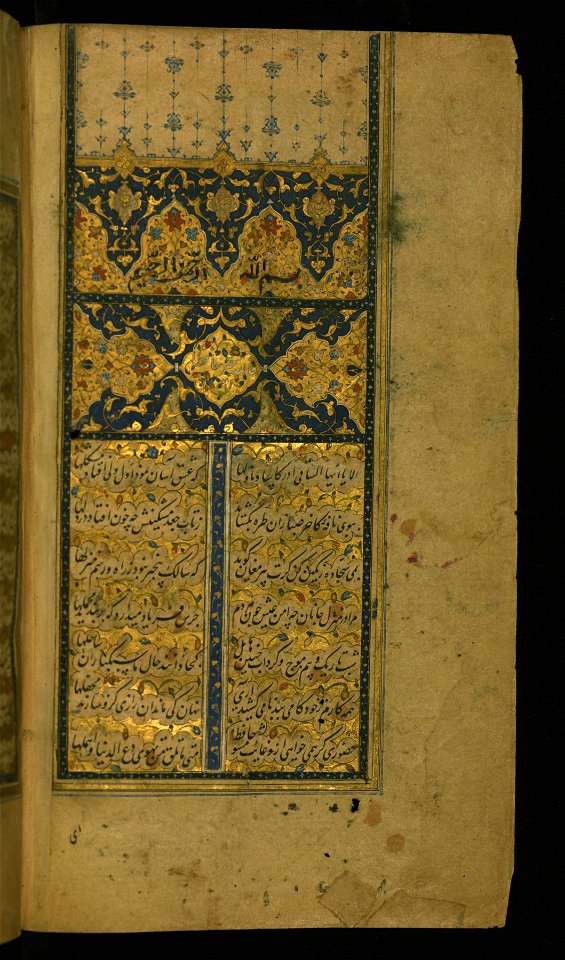 بسم الله الرحمن الرحیم
الا یا ایها الساقی ادر کاسا و ناولها
که عشق آسان نمود اول ولی افتاد مشکلها
ببوی نافه کاخر صبا زان طره بگشاید
ز تاب جعد مشکینش چه خون افتاد در دلها
بمی سجاده رنگین کن گرت پیر مغان گوید
که سالک بیخبر نبود ز راه و رسم منزلها
مرا در منزل جانان چه امن عیش چون هر دم
جرس فریاد میدارد که بربندید محملها
شب تاریک و بیم موج و گردابی چنین هایل
کجا دانند حال ما سبکباران ساحلها
همه کارم ز خودکامی ببدنامی کشید آری
نهان کی ماند آن رازی کزو سازند محفلها
حضوری گر همی خواهی ازو غایب مشو حافظ
متی ما تلق من تهوی دع الدنیا و اهملها
ای